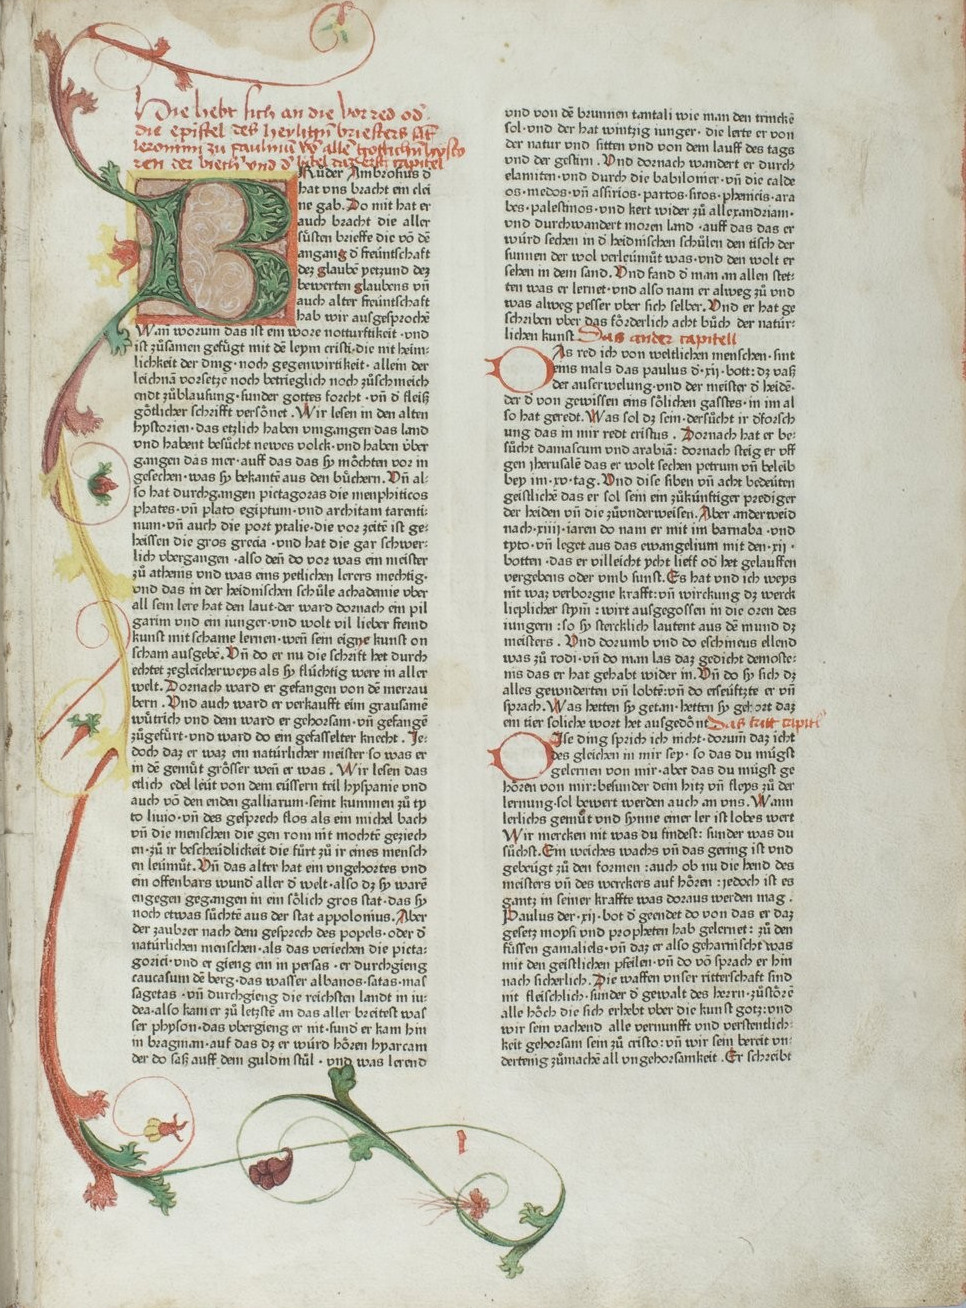 Hie hebt sich an die vorred od'
die epistel des heyligen briesters sāt
ieronimi zu paulinū vō alle gotlichn̄ hysto
ren der biech' vnd d' bibel daz erst capitel
BRuder Ambrosius d'
hat vns bracht ein clei
ne gab. Do mit hat er
auch bracht die aller
süsten brieffe die vō dē
angang d' freüntschaft
dez glaubē yetzund dez
bewerten glaubens vn̄
auch alter freüntschaft
hab wir ausgesprochē
Wan̄ worum das ist ein wore notturftikeit ·vnd
ist zůsamen gefügt mit dē leym cristi·die nit heim⸗
lichkeit der ding·noch gegenwirtikeit· allein der
leichnā vorsetze noch betrieglich noch zůschmeich
endt zůblaufung·sunder gottes forcht ·vn̄ d' fleiß
götlicher schrifft versönet .Wir lesen in den alten
hystorien·das etzlich haben vmgangen das land
vnd habent besücht newes volck·vnd haben über
gangen das mer·auff das das sy möchten vor in
gesechen·was sy bekantē aus den büchern.Vn̄ al⸗
so hat durchgangen pictagoras die menphiticos
phates·vn̄ plato egiptum·vnd architam tarenti⸗
num·vn̄ auch die port ytalie·die vor zeitē ist ge⸗
heissen die gros grecia ·vnd hat die gar schwer⸗
lich vbergangen ·also den̄ do vor was ein meister
zů athenis vnd was eins yetlichen lerers mechtig·
vnd das in der heidnischen schůle achademie vber
all sein lere hat den laut·der ward dornach ein pil
garim vnd ein iunger·vnd wolt vil lieber fremd
kunst mit schame lernen·wen̄ sein eigne kunst on
scham ausgebē.Vn̄ do er nu die schrift het durch
echtet zegleicherweys als sy flüchtig were in aller
welt.Dornach ward er gefangen von dē merrau
bern .Vnd auch ward er verkaufft eim grausamē
wůtrich vnd dem ward er gehorsam·vn̄ gefangē
zůgefürt·vnd ward do ein gefasselter knecht .Je⸗
doch daz er waz ein natürlicher meister·so was er
in dē gemůt grösser wen̄ er was .Wir lesen das
etlich edel leüt von dem eüssern teil hyspanie vnd
auch vō den enden galliarum·seint kummen zů ty
to liuio·vn̄ des gesprech flos als ein michel bach
vn̄ die menschen die gen rom nit mochtē geziech
en·zů ir bescheüdlickeit die fürt zů ir eines mensch
en leümůt.Vn̄ das alter hat ein vngehortes vnd
ein offenbars wund' aller d' welt·also dz sy warē
engegen gegangen in ein sölich gros stat·das sy
noch etwas süchtē aus der stat appolonius.Aber
der zaubrer nach dem gesprech des popels·oder d'
natürlichen menschen·als das veriechen die picta⸗
gorici·vnd er gieng ein in persas ·er durchgieng
caucasum dē berg·das wasser albanos·satas·mas
sagetas ·vn̄ durchgieng die reichsten landt in iu⸗
dea·also kam er zů letzste an das aller breitest was
ser physon·das vbergieng er nit·sund' er kam hin
in bragman·auf das dz er würd hören hyarcam
der do saß auff dem guldin stůl · vnd was lerend
vnd von dē brunnen tantali wie man den trinckē
sol·vnd der hat wintzig iunger· die lerte er von
der natur vnd sitten vnd von dem lauff des tags
vnd der gestirn .Vnd dornach wandert er durch
elamiten·vnd durch die babilonier·vn̄ die calde
os·medos·vn̄ assirios·partos·siros·phenicis·ara
bes·palestinos·vnd kert wider zů allexandriam·
vnd durchwandert moren land ·auff das das er
würd sechen in d' heidnischen schůlen den tisch der
sunnen der wol verleümüt was·vnd den wolt er
sehen in dem sand.Vnd fand d' man an allen stet⸗
ten was er lernet·vnd also nam er alweg zů vnd
was alweg pesser vber sich selber.Vnd er hat ge
schriben vber das förderlich acht bůch der natür⸗
lichen kunst. Das ander capitell
DAs red ich von weltlichen menschen·sint
eins mals das paulus d'·xij·bott: dz vaß
der auserwelung·vnd der meister d' heidē·
der d' von gewissen eins sölichen gasstes·in im al
so hat geredt.Was sol dz sein·dersücht ir d'forsch
ung das in mir redt cristus .Dornach hat er be⸗
sücht damascum vnd arabiā: dornach steig er vff
gen jherusalē das er wolt sechen petrum vn̄ beleib
bey im·xv·tag.Vnd dise siben vn̄ acht bedeüten
geistlichē das er sol sein ein zůkünftiger prediger
der heiden vn̄ die zůvnderweisen.Aber anderweid
nach·xiiij·iaren do nam er mit im barnaba ·vnd
tyto·vn̄ leget aus das ewangelium mit den·xij·
botten·das er villeicht ycht lieff od' het gelauffen
vergebens oder vmb sunst.Es hat vnd ich weys
nit waz verborgne krafft:vn̄ wirckung dz werck
lieplicher stym̄:wirt ausgegossen in die oren des
iungern:so sy stercklich lautent aus dē mund dz
meisters .Vnd dorumb vnd do eschineus ellend
was zů rodi·vn̄ do man las daz gedicht demoste⸗
nis das er hat gehabt wider in.Vn̄ do sy sich dz
alles gewnderten vn̄ lobtē:vn̄ do erseüfzte er vn̄
sprach.Was hetten sy getan·hetten sy gehort daz
ein tier soliche wort het ausgedönt Das tritt capitel
DIse ding sprich ich nicht·dorum daz icht
des gleichen in mir sey· so das du mügst
gelernen von mir·aber das du mügst ge
hören von mir:besunder dein hitz vn̄ fleys zů der
lernung·sol bewert werden auch an vns.Wann
lerlichs gemüt vnd synne einer ler ist lobes wert
Wir mercken nit was du findest: sunder was du
süchst.Ein weiches wachs vn̄ das gering ist vnd
gebeügt zů den formen :auch ob nu die hend des
meisters vn̄ des werckers auf hören :jedoch ist es
gantz in seiner kraffte was doraus werden mag .
Paulus der·xij·bot d' geendet do von das er daz
gesetz moysi vnd propheten hab gelernet: zů den
füssen gamaliels·vn̄ daz er also geharnischt was
mit den geistlichen pfeilen·vn̄ do vō sprach er hin
nach sicherlich.Die waffen vnser ritterschaft sind
nit fleischlich·sunder d' gewalt des herrn·zůstörē
alle höch die sich erhebt vber die kunst gotz:vnd
wir sein vachend alle vernunfft vnd verstentlich⸗
keit gehorsam sein zů cristo:vn̄ wir sein bereit vn⸗
dertenig zůmachē all vngehorsamkeit .Er schreibt
I